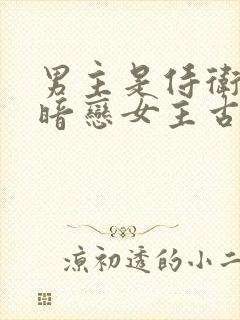 男主是侍衛
暗戀女主古
涼初透的小二